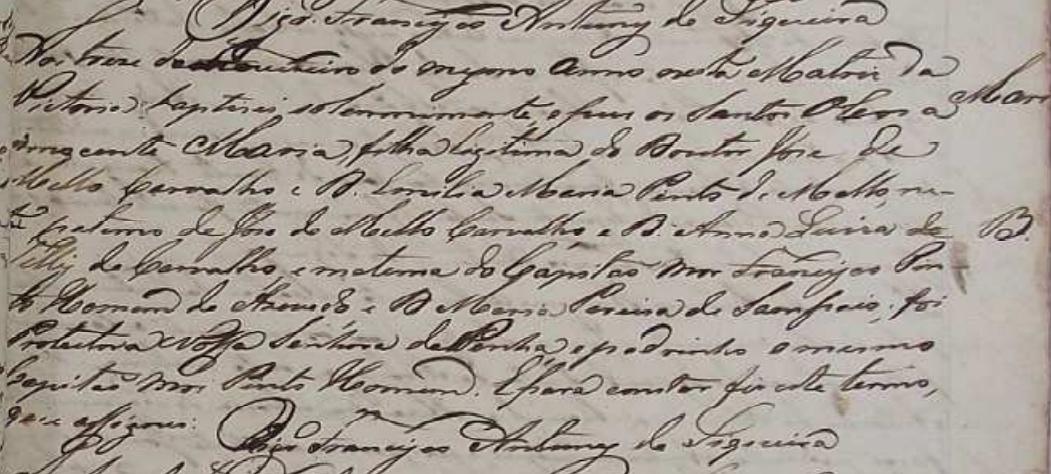 Vigº. Francisco Antunes de Siqueira
Aos treze de Fevereiro do mesmo anno nesta Matriz da
Victoria baptisei solemnimente, e pus os Santos Oleos a
innocente Maria, filha legitima do Doutor José de
Mello Carvalho e D. Emilia Maria Pinto de Mello, ne-
ta paterna de José de Mello Carvalho e D. Anna Luiza de
de Carvalho, e materna do Capitão Mor Francisco Pin-
to Homem de Azevedo e D. Maria Pereira de Sampaio; foi
Protectora Nossa Senhora da Penha, e padrinho o mesmo
Capitão Mor Pinto Homem. E para constar fiz este termo,
que assignei.
Vigº Francisco Antunes de Siqueira
Mari
B.